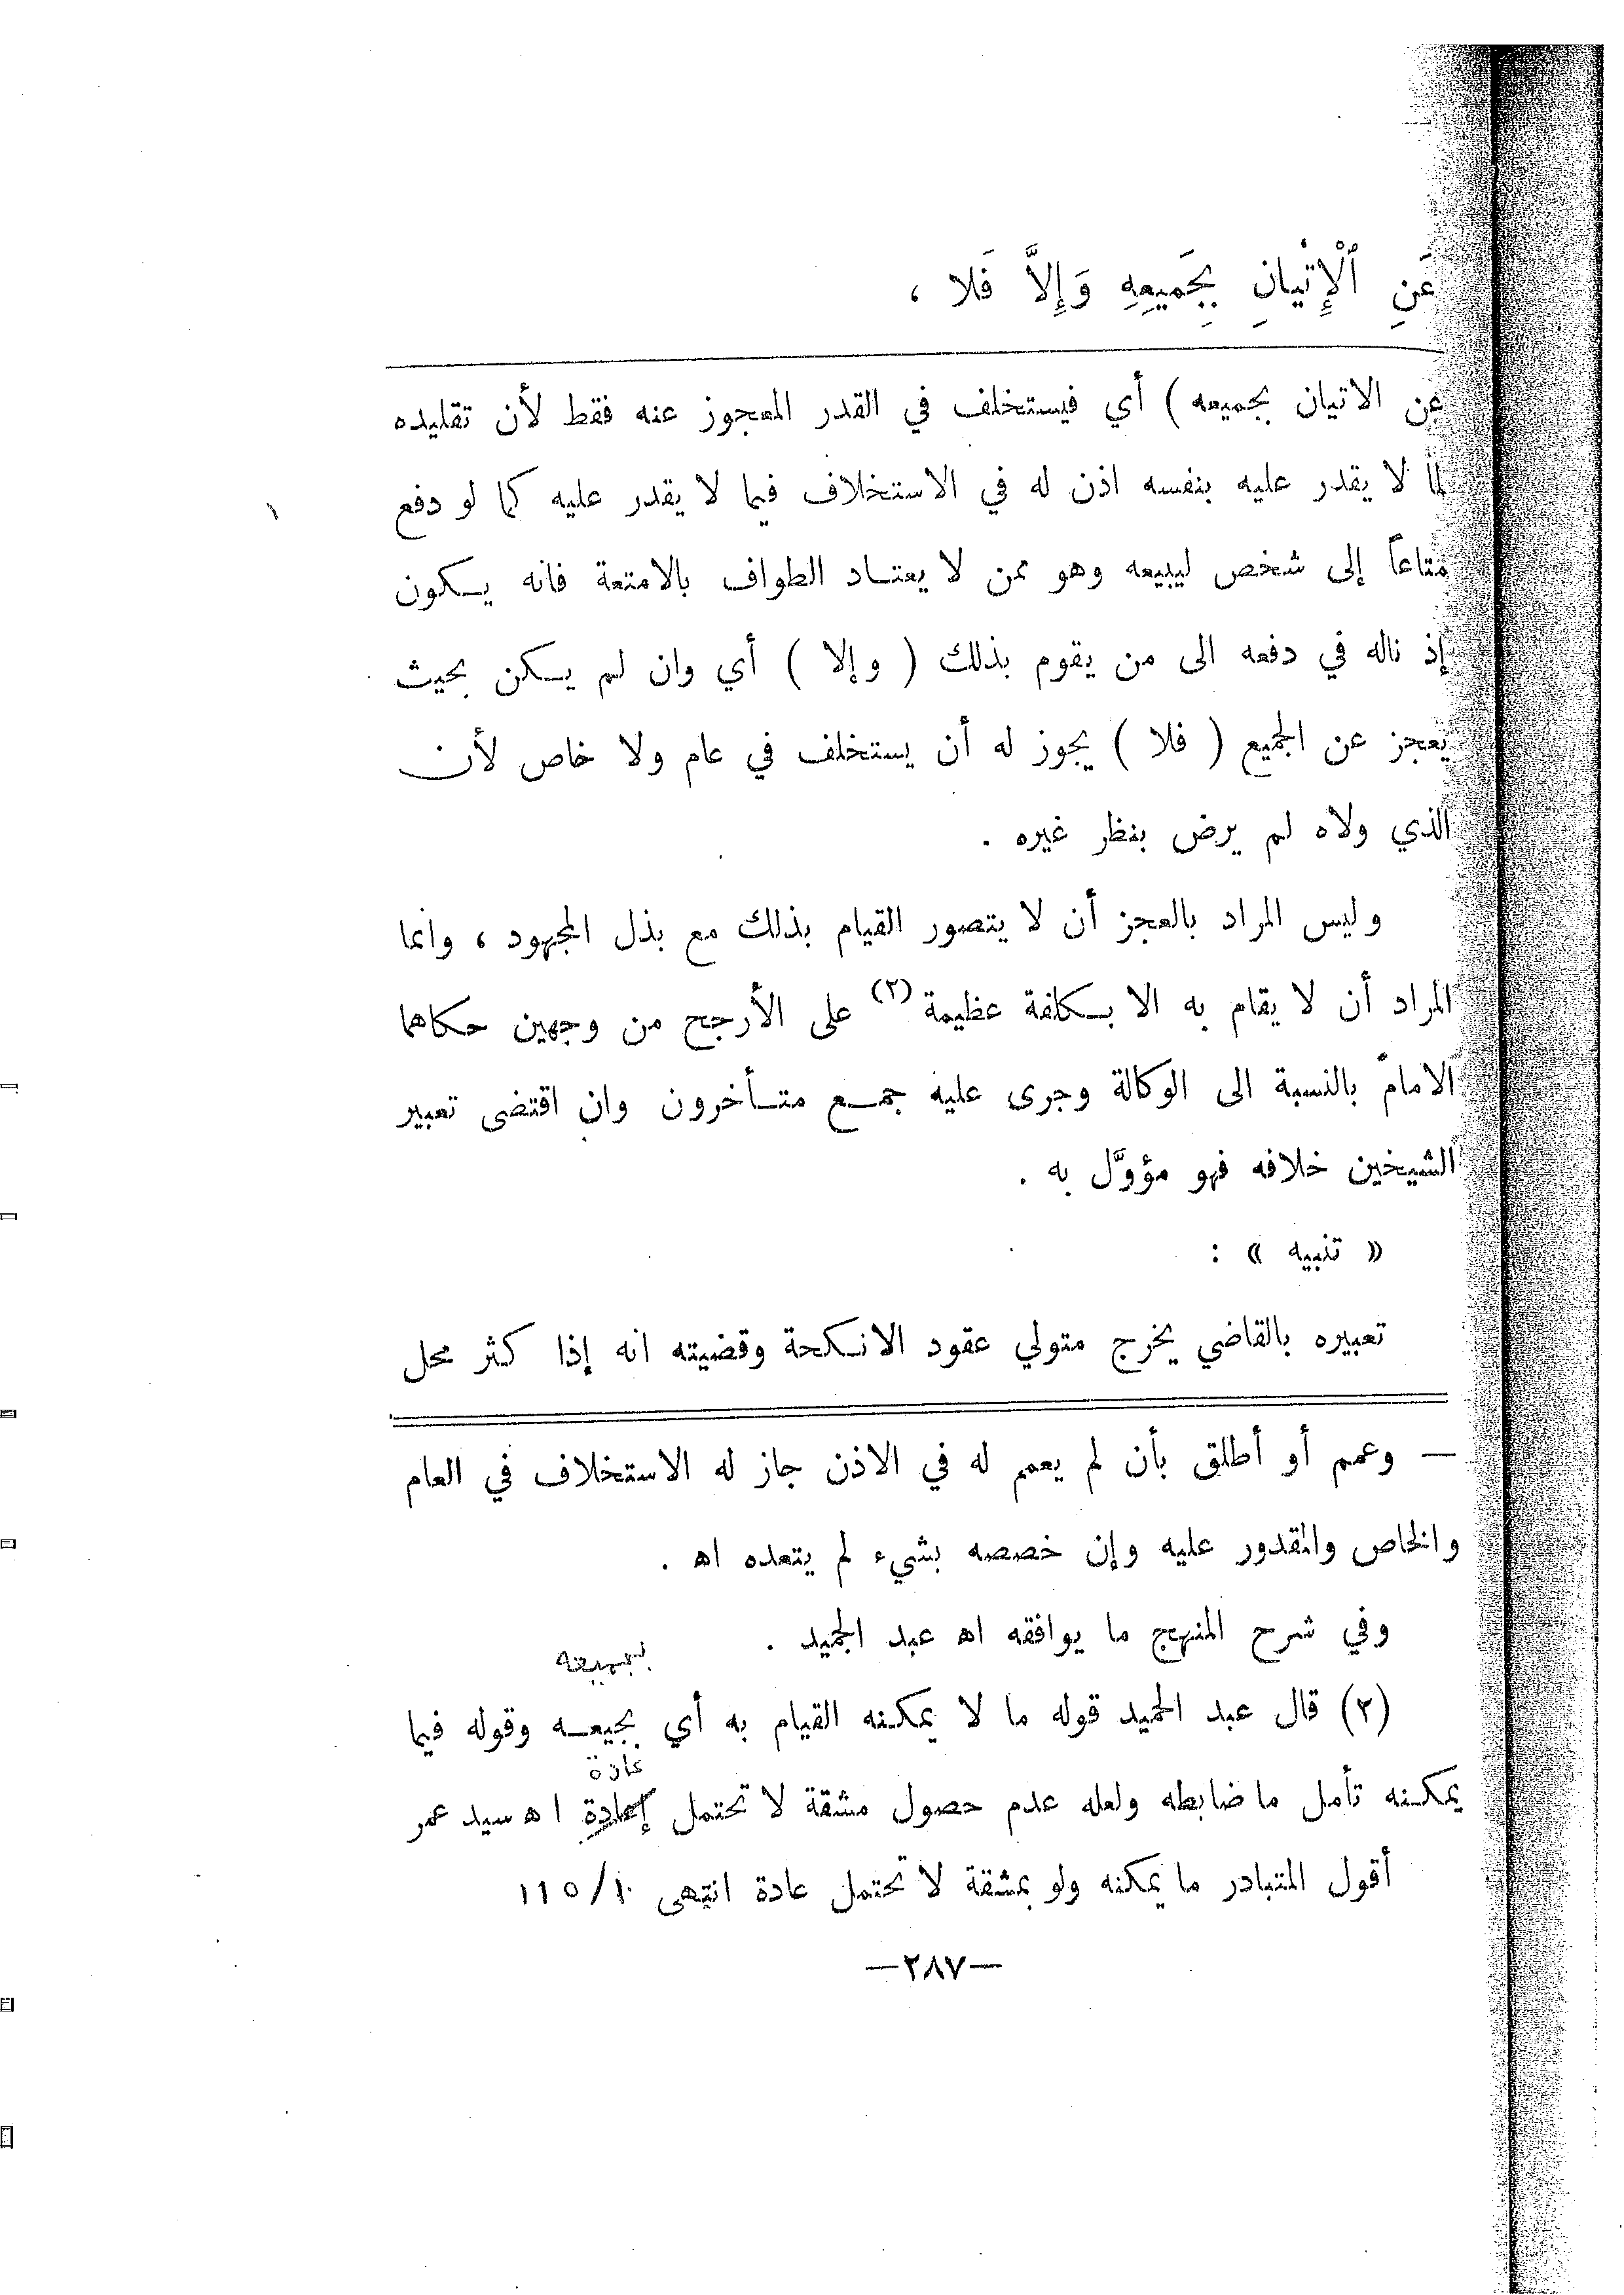 عَنِ ٱلْإِتْيانِ بِجَمِيعِهِ وَإِلاَّ فَلا ،
عن الاتيان بجميعه ) أي فيستخلف في القدر المعجوز عنه فقط لأن تقليده
لما لا يقدر عليه بنفسه اذن له في الاستخلاف فيما لا يقدر عليه كما لو دفع
متاعاً إلى شخص ليبيعه وهو ممن لا يعتاد الطواف بالامتعة فانه يكون
إذ ناله في دفعه الى من يقوم بذلك ( وإلا ) أي وان لم يكن بحيث
يعجز عن الجميع ( فلا ) يجوز له أن يستخلف في عام ولا خاص لأن
الذي ولاه لم يرض بنظر غيره .
وليس المراد بالعجز أن لا يتصور القيام بذلك مع بذل المجهود ، وانما
المراد أن لا يقام به الا بكلفة عظيمة (٢) على الأرجح من وجهين حكاهما
الامام بالنسبة الى الوكالة وجرى عليه جمع متأخرون وان اقتضى تعبير
الشيخين خلافه فهو مؤوَّل به .
« تنبيه » :
تعبيره بالقاضي يخرج متولي عقود الانكحة وقضيته انه إذا كثر محل
— وعمم أو أطلق بأن لم يعمم له في الاذن جاز له الاستخلاف في العام
والخاص والمقدور عليه وإن خصصه بشيء لم يتعده اه .
وفي شرح المنهج ما يوافقه اه عبد الحميد .
بجميعه
(٢) قال عبد الحميد قوله ما لا يمكنه القيام به أي بجيعه وقوله فيما
عادة
يمكنه تأمل ما ضابطه ولعله عدم حصول مشقة لا تحتمل إعادة اه سيد عمر
أقول المتبادر ما يمكنه ولو بمشقة لا تحتمل عادة انتهى ١٠/١١٥
—٢٨٧—